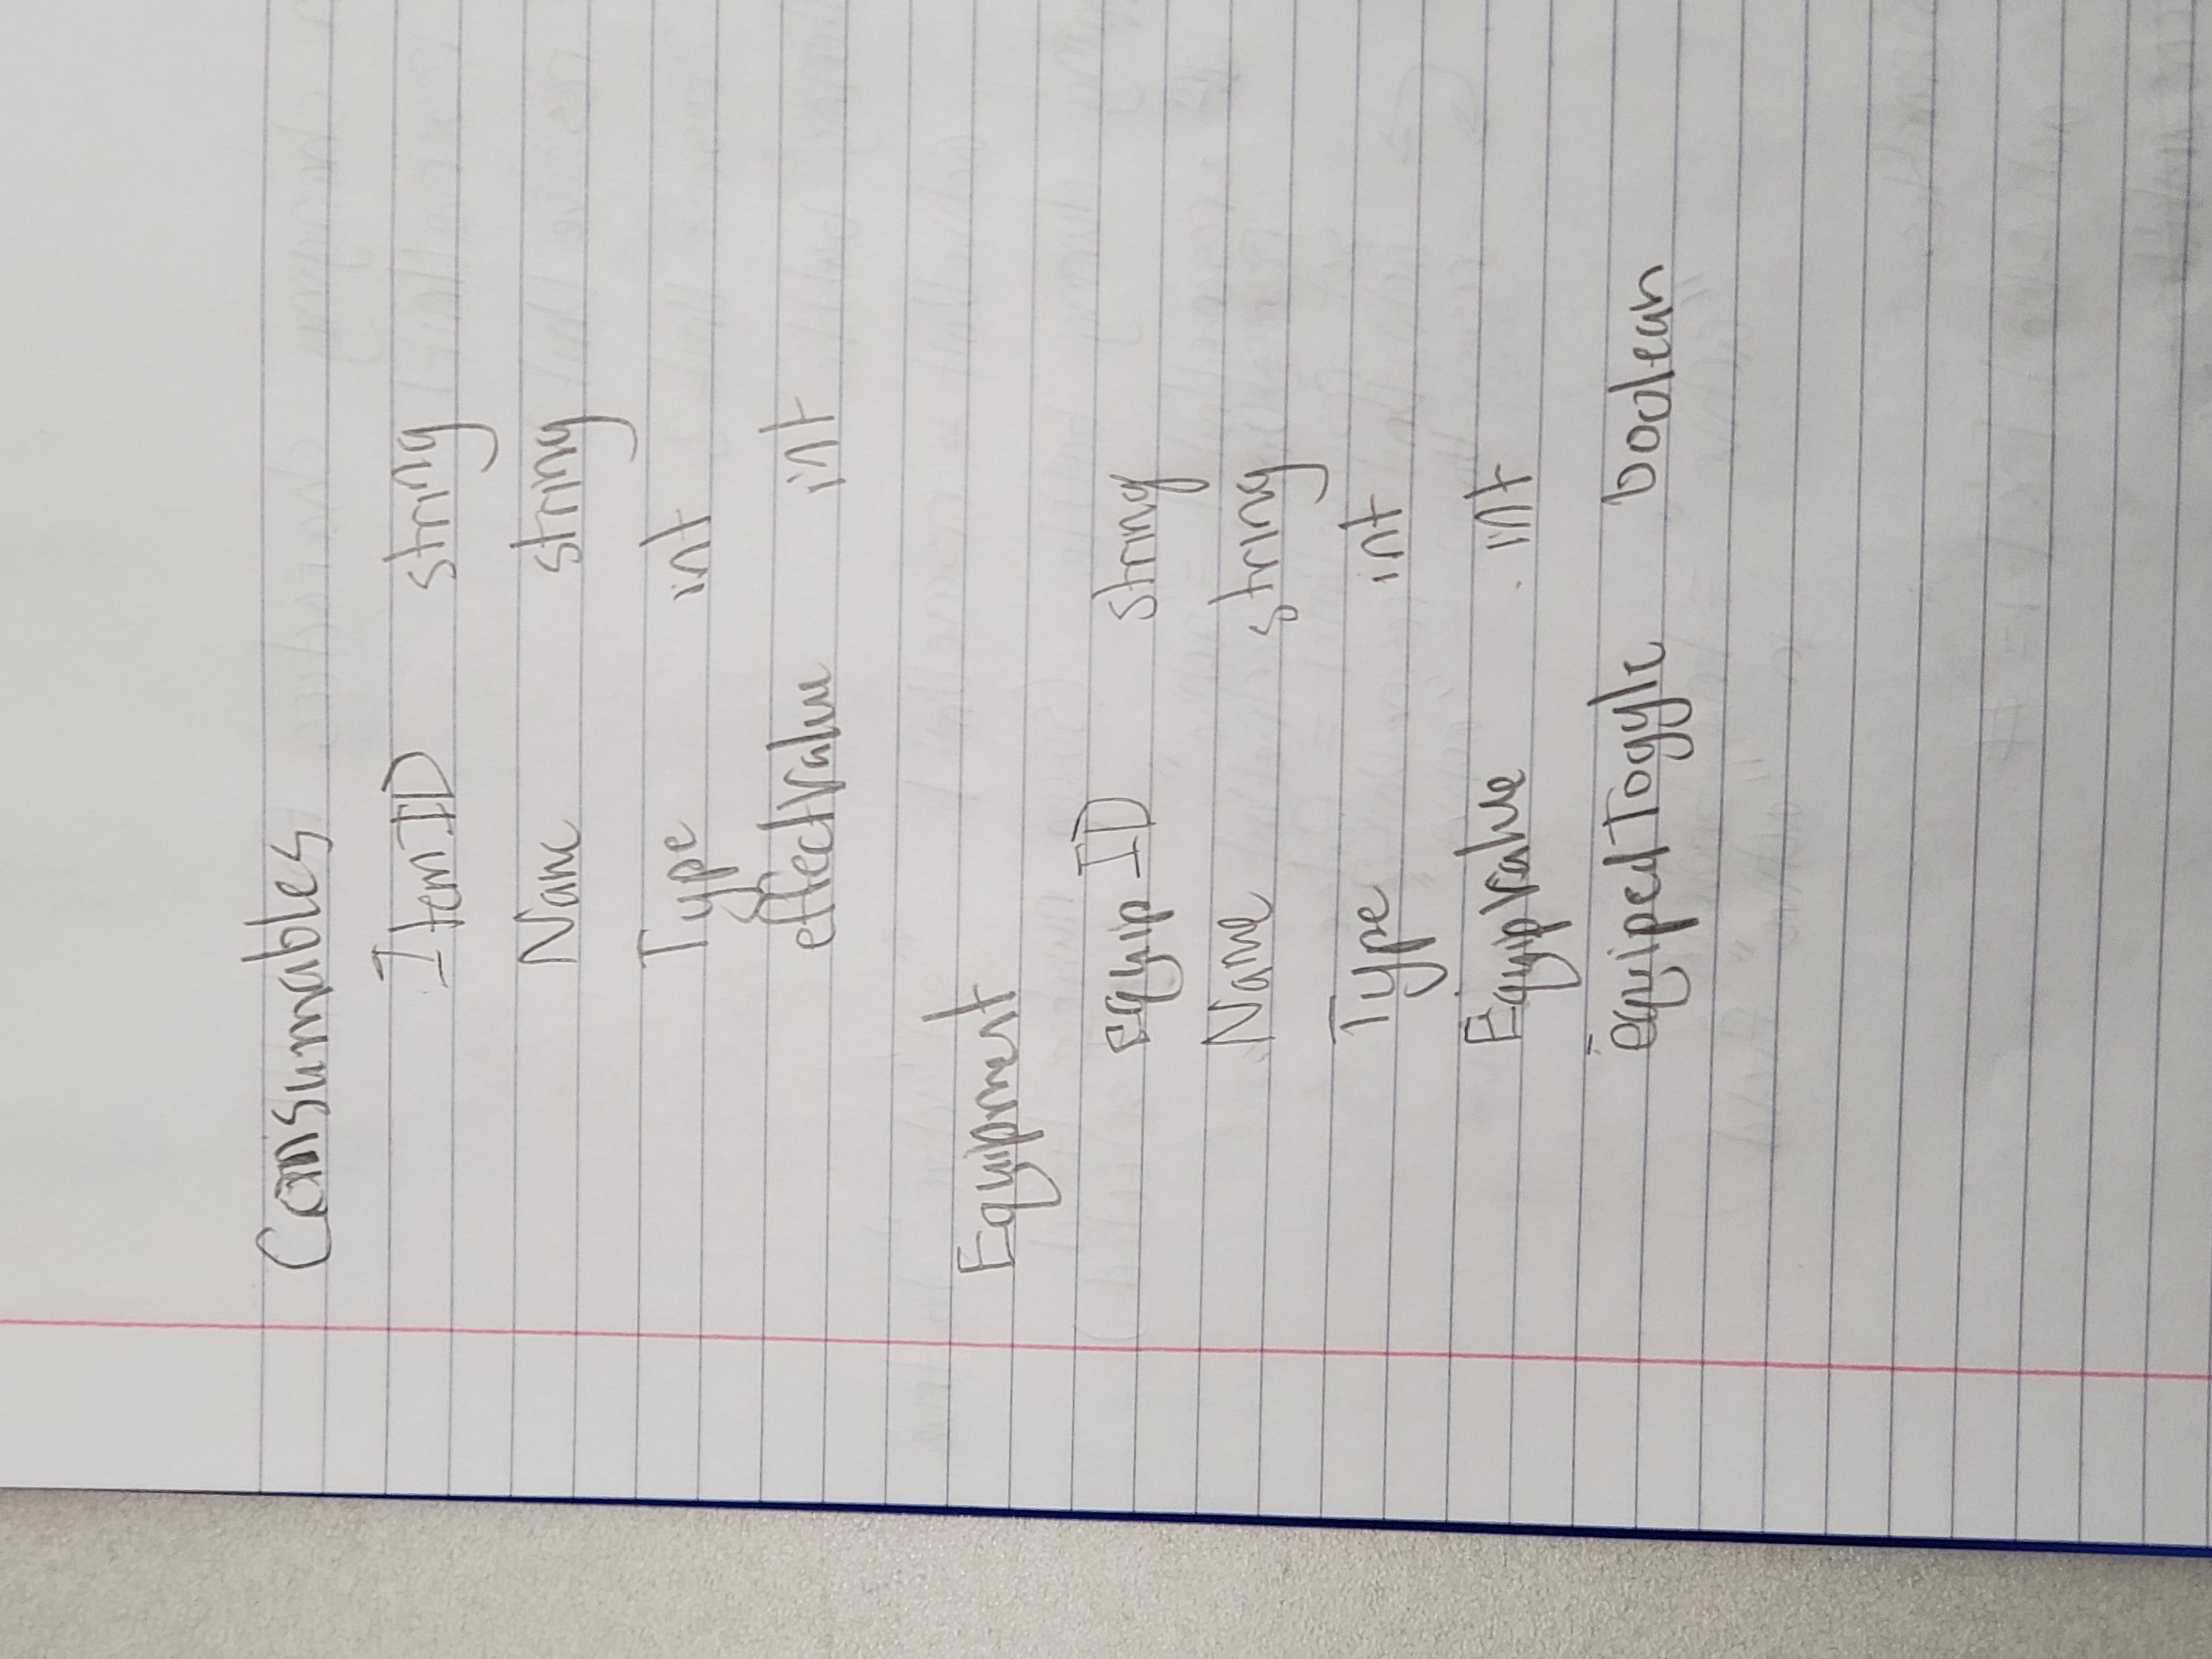 Consumables
ItemID string
Name string
Type int
effectValue int
Equipment
equipID string
Name string
Type int
EquipValue int
equipedToggle boolean